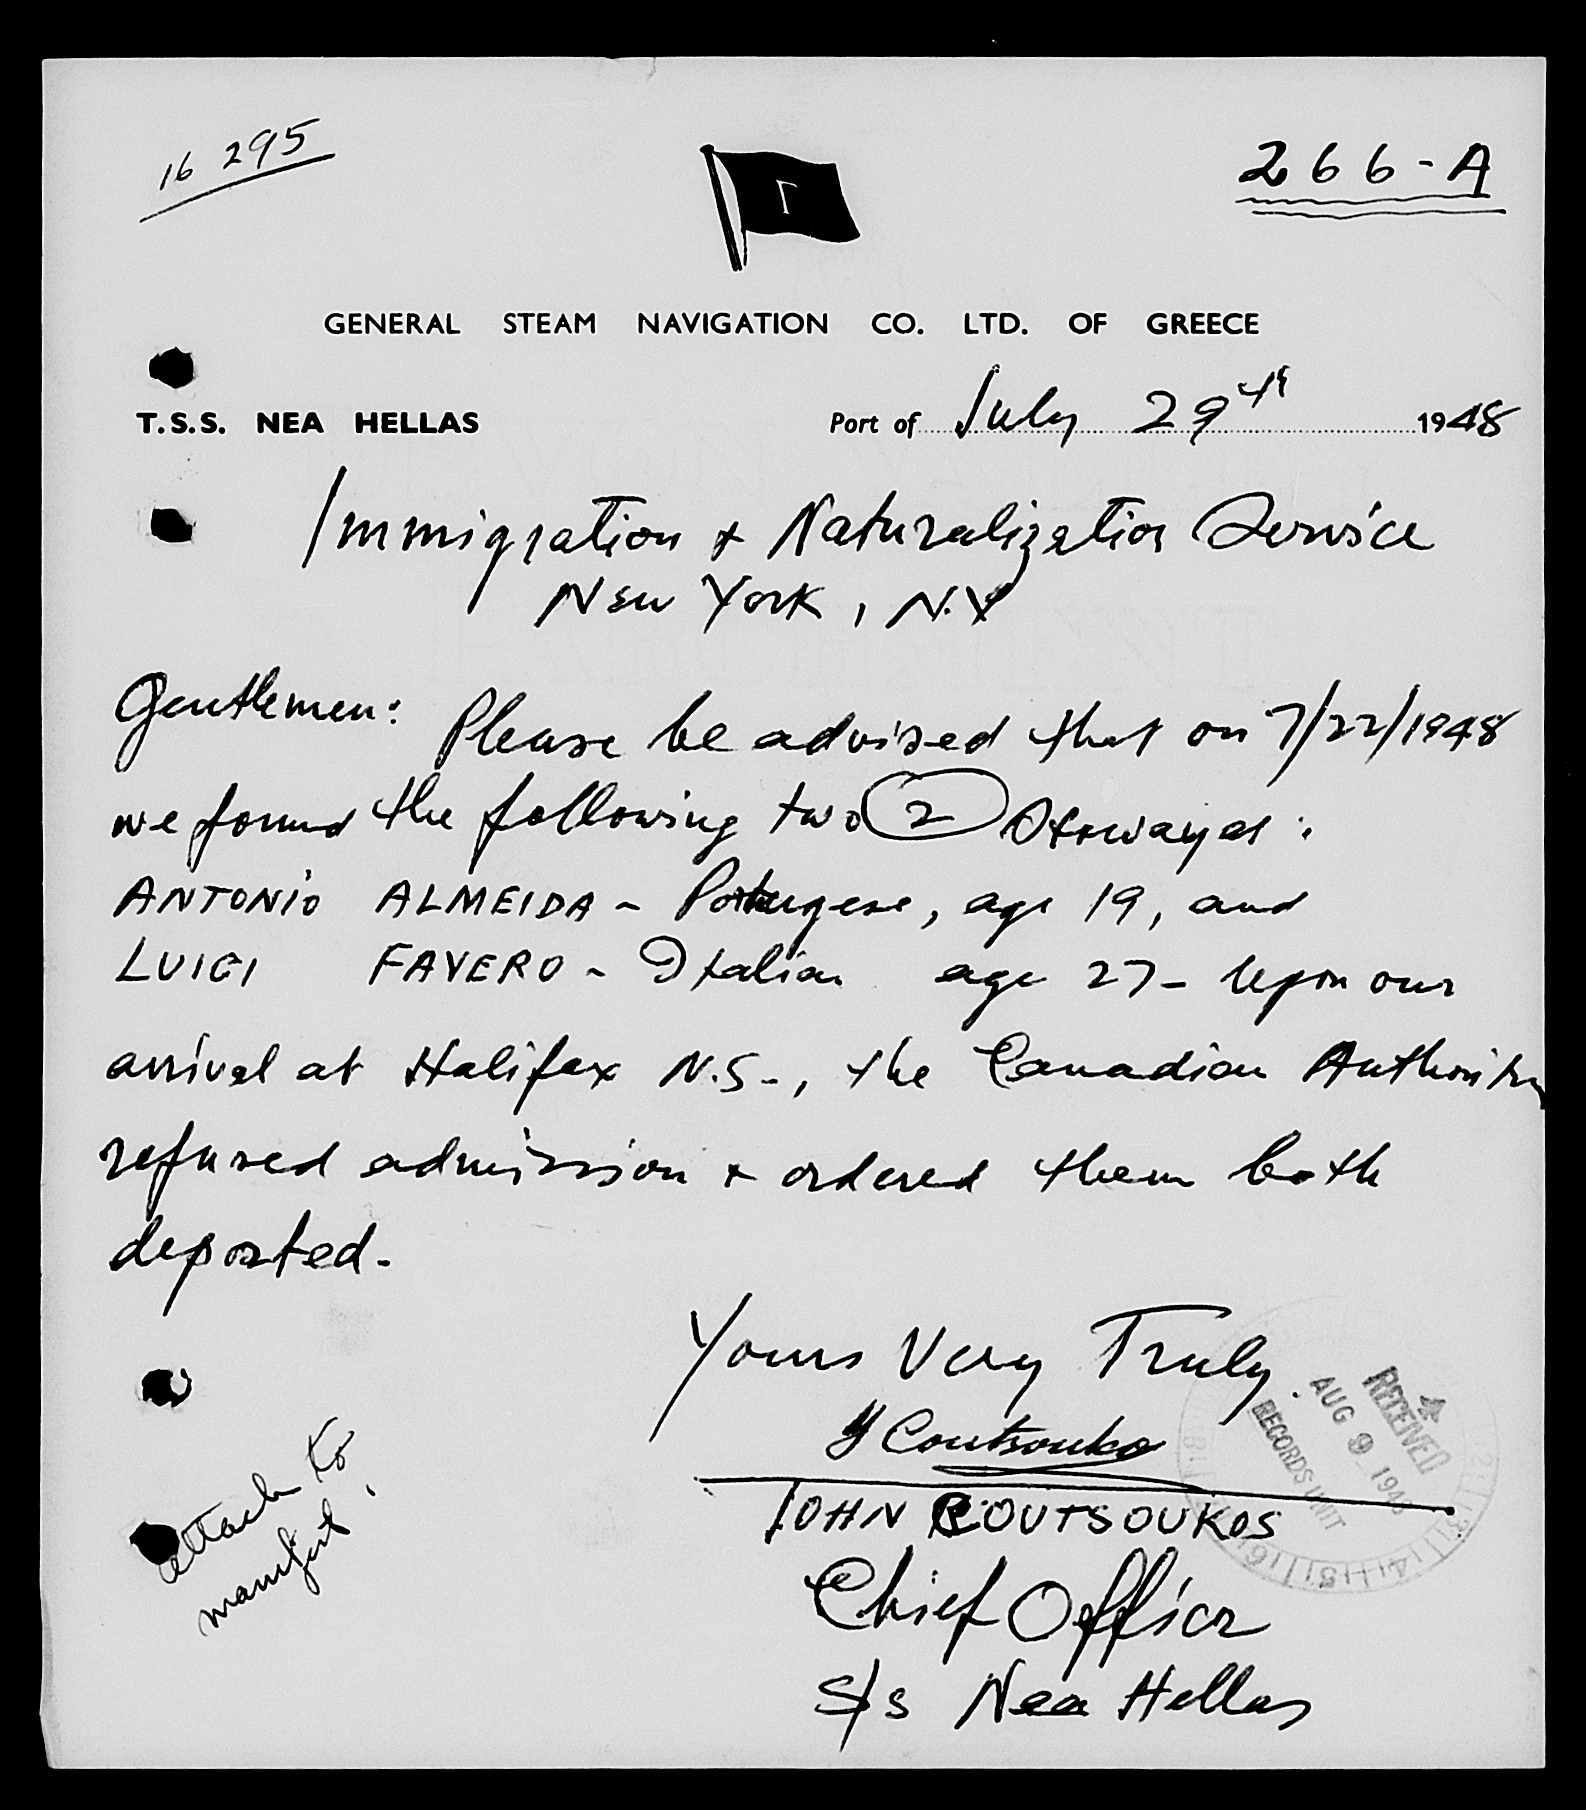 16 295
266-A
Γ
GENERAL STEAM NAVIGATION CO. LTD. OF GREECE
T.S.S. NEA HELLAS
Port of July 29th 1948
Immigration & Naturalization Service
New York, N.Y
Gentlemen: Please be advised that on 7/22/1948
we found the following two (2) Stowayes:
ANTONIO ALMEIDA - Portugese, age 19, and
LUIGI FAVERO - Italian age 27 - Upon our
arrival at Halifax N.S., the Canadian Authority
refused admission & ordered them both
deported.
Yours Very Truly
Coutsoukos
JOHN COUTSOUKOS
Chief Officer
S/S Nea Hellas
attach to
manifest
RECEIVED
AUG 9 1948
RECORDS UNIT